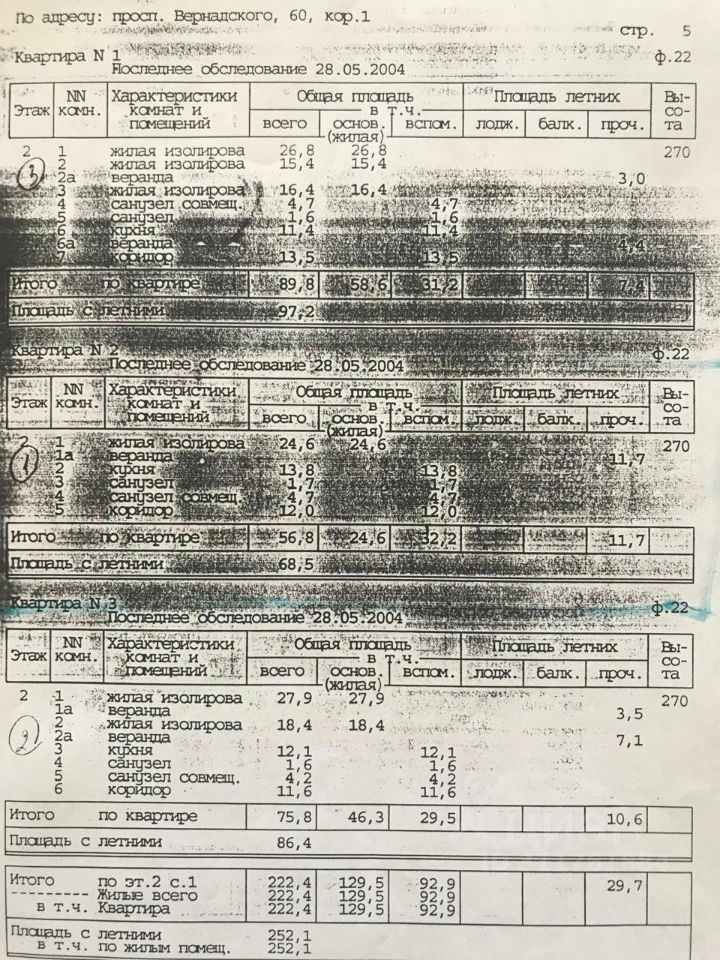 По адресу: просп. Вернадского, 60, кор.1
стр. 5
Квартира N 1 ф.22
Последнее обследование 28.05.2004
Этаж NN комн. Характеристики комнат и помещений Общая площадь всего в т.ч. основ. (жилая) вспом. Площадь летних лодж. балк. проч. Вы-со-та
2 1 жилая изолирова 26,8 26,8 270
2 жилая изолирова 15,4 15,4
3 2а веранда 3,0
3 жилая изолирова 16,4 16,4
4 санузел совмещ. 4,7 4,7
5 санузел 1,6 1,6
6 кухня 11,4 11,4
6а веранда 4,4
7 коридор 13,5 13,5
Итого по квартире 89,8 58,6 31,2 7,4
Площадь с летними 97,2
Квартира N 2 ф.22
Последнее обследование 28.05.2004
Этаж NN комн. Характеристики комнат и помещений Общая площадь всего в т.ч. основ. (жилая) вспом. Площадь летних лодж. балк. проч. Вы-со-та
2 1 жилая изолирова 24,6 24,6 270
1 1а веранда 11,7
2 кухня 13,8 13,8
3 санузел 1,7 1,7
4 санузел совмещ. 4,7 4,7
5 коридор 12,0 12,0
Итого по квартире 56,8 24,6 32,2 11,7
Площадь с летними 68,5
Квартира N 3 ф.22
Последнее обследование 28.05.2004
Этаж NN комн. Характеристики комнат и помещений Общая площадь всего в т.ч. основ. (жилая) вспом. Площадь летних лодж. балк. проч. Вы-со-та
2 1 жилая изолирова 27,9 27,9 270
1а веранда 3,5
2 жилая изолирова 18,4 18,4
2 2а веранда 7,1
3 кухня 12,1 12,1
4 санузел 1,6 1,6
5 санузел совмещ. 4,2 4,2
6 коридор 11,6 11,6
Итого по квартире 75,8 46,3 29,5 10,6
Площадь с летними 86,4
Итого по эт.2 с.1 222,4 129,5 92,9 29,7
--------- Жилые всего 222,4 129,5 92,9
в т.ч. Квартира 222,4 129,5 92,9
Площадь с летними 252,1
в т.ч. по жилым помещ. 252,1